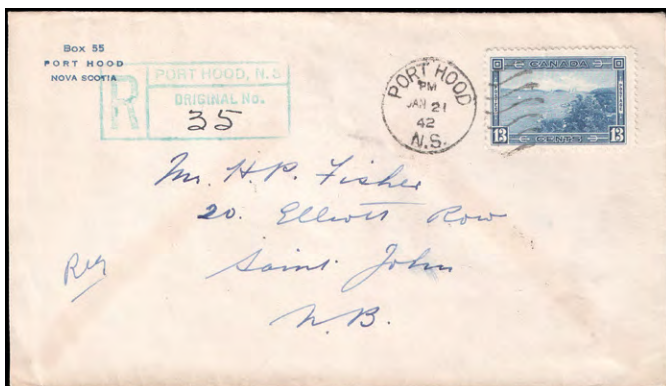 Box 55
PORT HOOD
NOVA SCOTIA
R
PORT HOOD, N.S
ORIGINAL No.
35
PORT HOOD
PM
JAN 21
42
N.S.
CANADA
13 CENTS 13
Mr. H.P. Fisher
20. Elliott Row
Saint John
N.B.
Reg